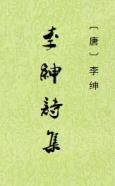 李紳詩集
〔唐〕李绅